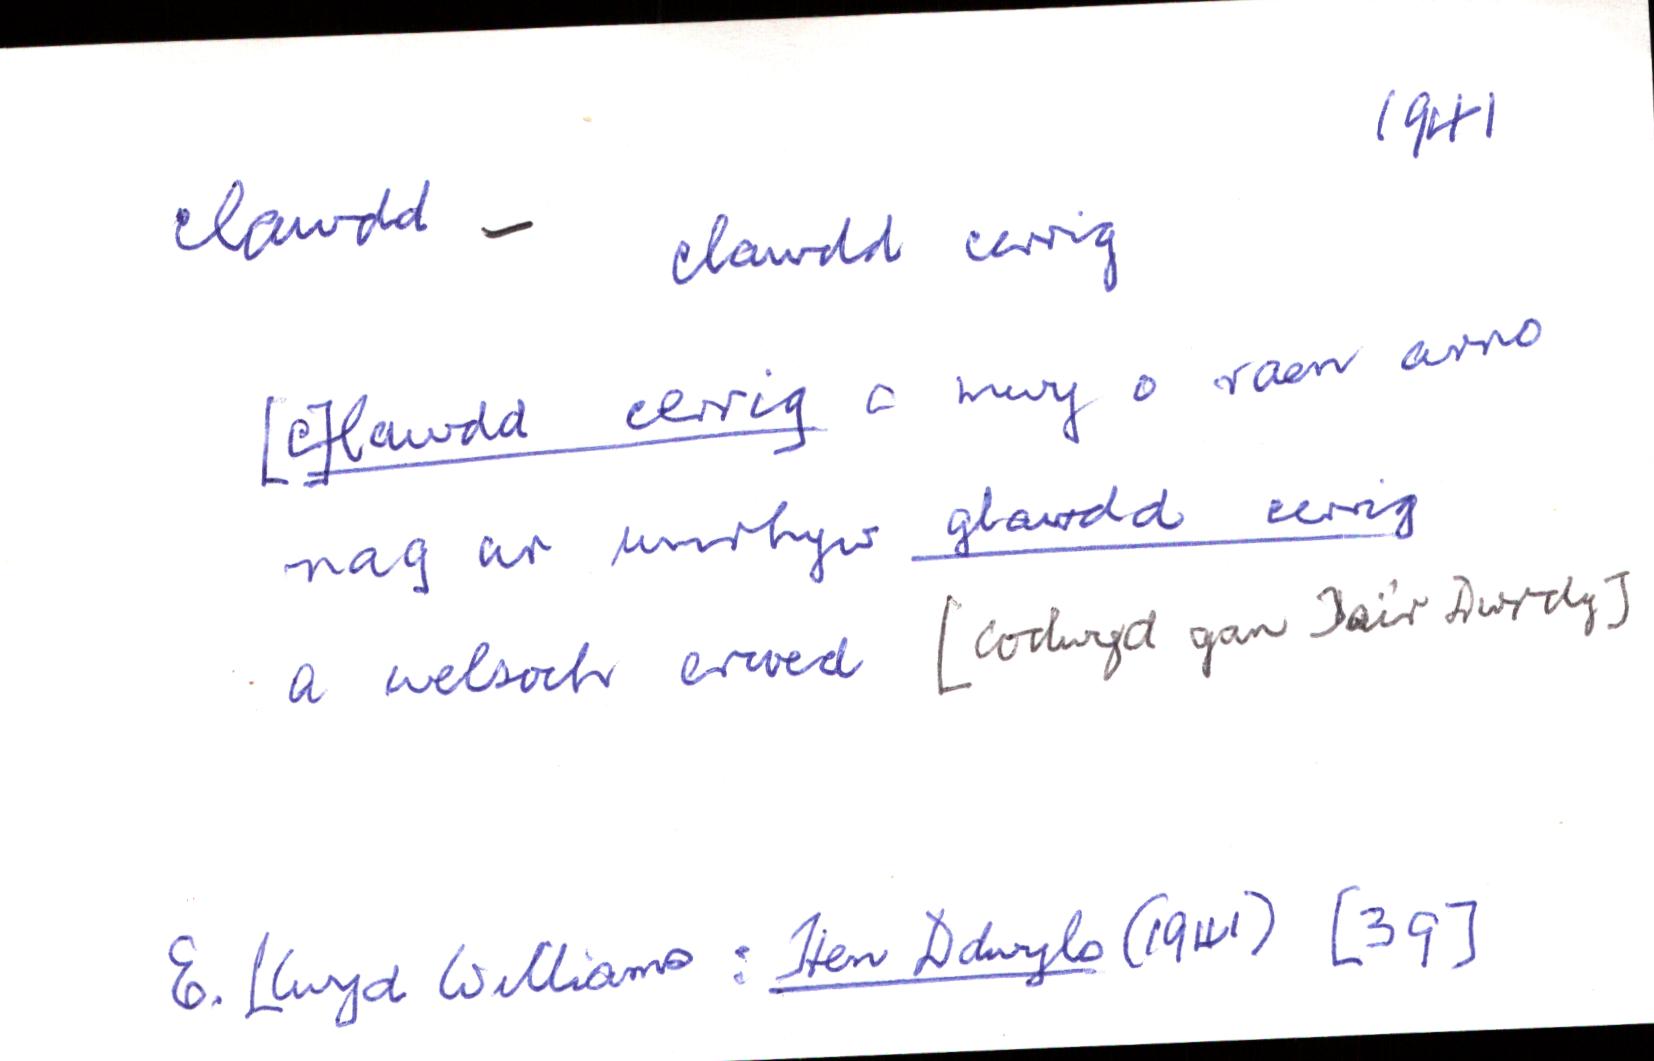 1941
clawdd – clawdd cerrig
[c]lawdd cerrig a mwy o raen arno
nag ar unrhyw glawdd cerrig
a welsoch erioed [codwyd gan Dwrdy]
E. Llwyd Williams : Hen Ddwylo (1941) [39]